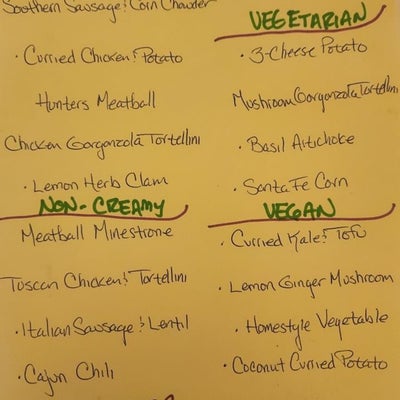 Southern Sausage & Corn Chowder
• Curried Chicken & Potato
Hunters Meatball
Chicken Gorgonzola Tortellini
• Lemon Herb Clam
NON-CREAMY
Meatball Minestrone
Tuscan Chicken & Tortellini
• Italian Sausage & Lentil
• Cajun Chili
VEGETARIAN
• 3-Cheese Potato
Mushroom Gorgonzola Tortellini
• Basil Artichoke
• Santa Fe Corn
VEGAN
• Curried Kale & Tofu
• Lemon Ginger Mushroom
• Homestyle Vegetable
• Coconut Curried Potato